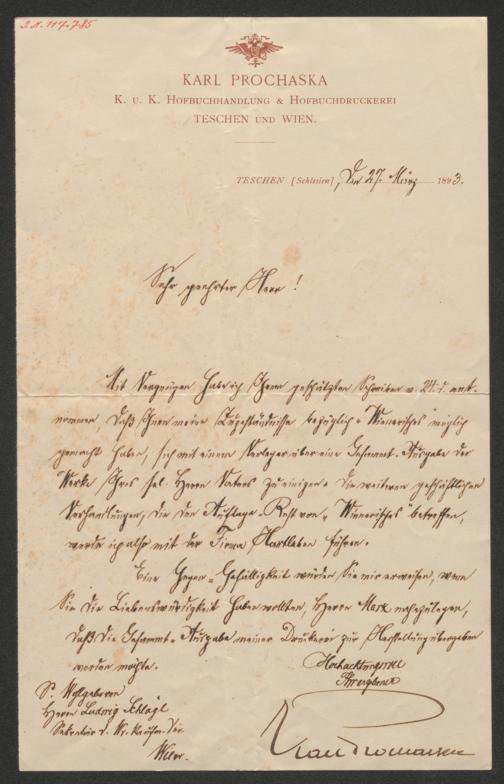 J.N. 117.785
KARL PROCHASKA
K. u. K. Hofbuchhandlung & Hofbuchdruckerei
TESCHEN und WIEN.
TESCHEN [Schlesien], den 27. März 1893.
Sehr geehrter Herr!
Mit Vergnügen habe ich Ihrem geschätzten Schreiben v. 24. d. ent-
nommen, daß Ihnen meine Zugeständnisse bezüglich „Wienerisches" möglich
gemacht haben, sich mit einem Verleger über eine Gesammt-Ausgabe der
Werke Ihres sel. Herrn Vaters zu einigen. Die weiteren geschäftlichen
Verhandlungen, die den Auflage-Rest von „Wienerisches" betreffen,
werde ich also mit der Firma Hartleben führen.
Eine Gegen-Gefälligkeit würden Sie mir erweisen, wenn
Sie die Liebenswürdigkeit haben wollten, Herrn Marx nahezulegen,
daß die Gesammt-Ausgabe meiner Druckerei zur Herstellung übergeben
werden möchte.
Hochachtungsvoll
Ihr ergebener
Karl Prochaska
Sr. Wohlgeboren
Herrn Ludwig Schlögl
Secretär d. Wr. kaufm. Ver.
Wien.